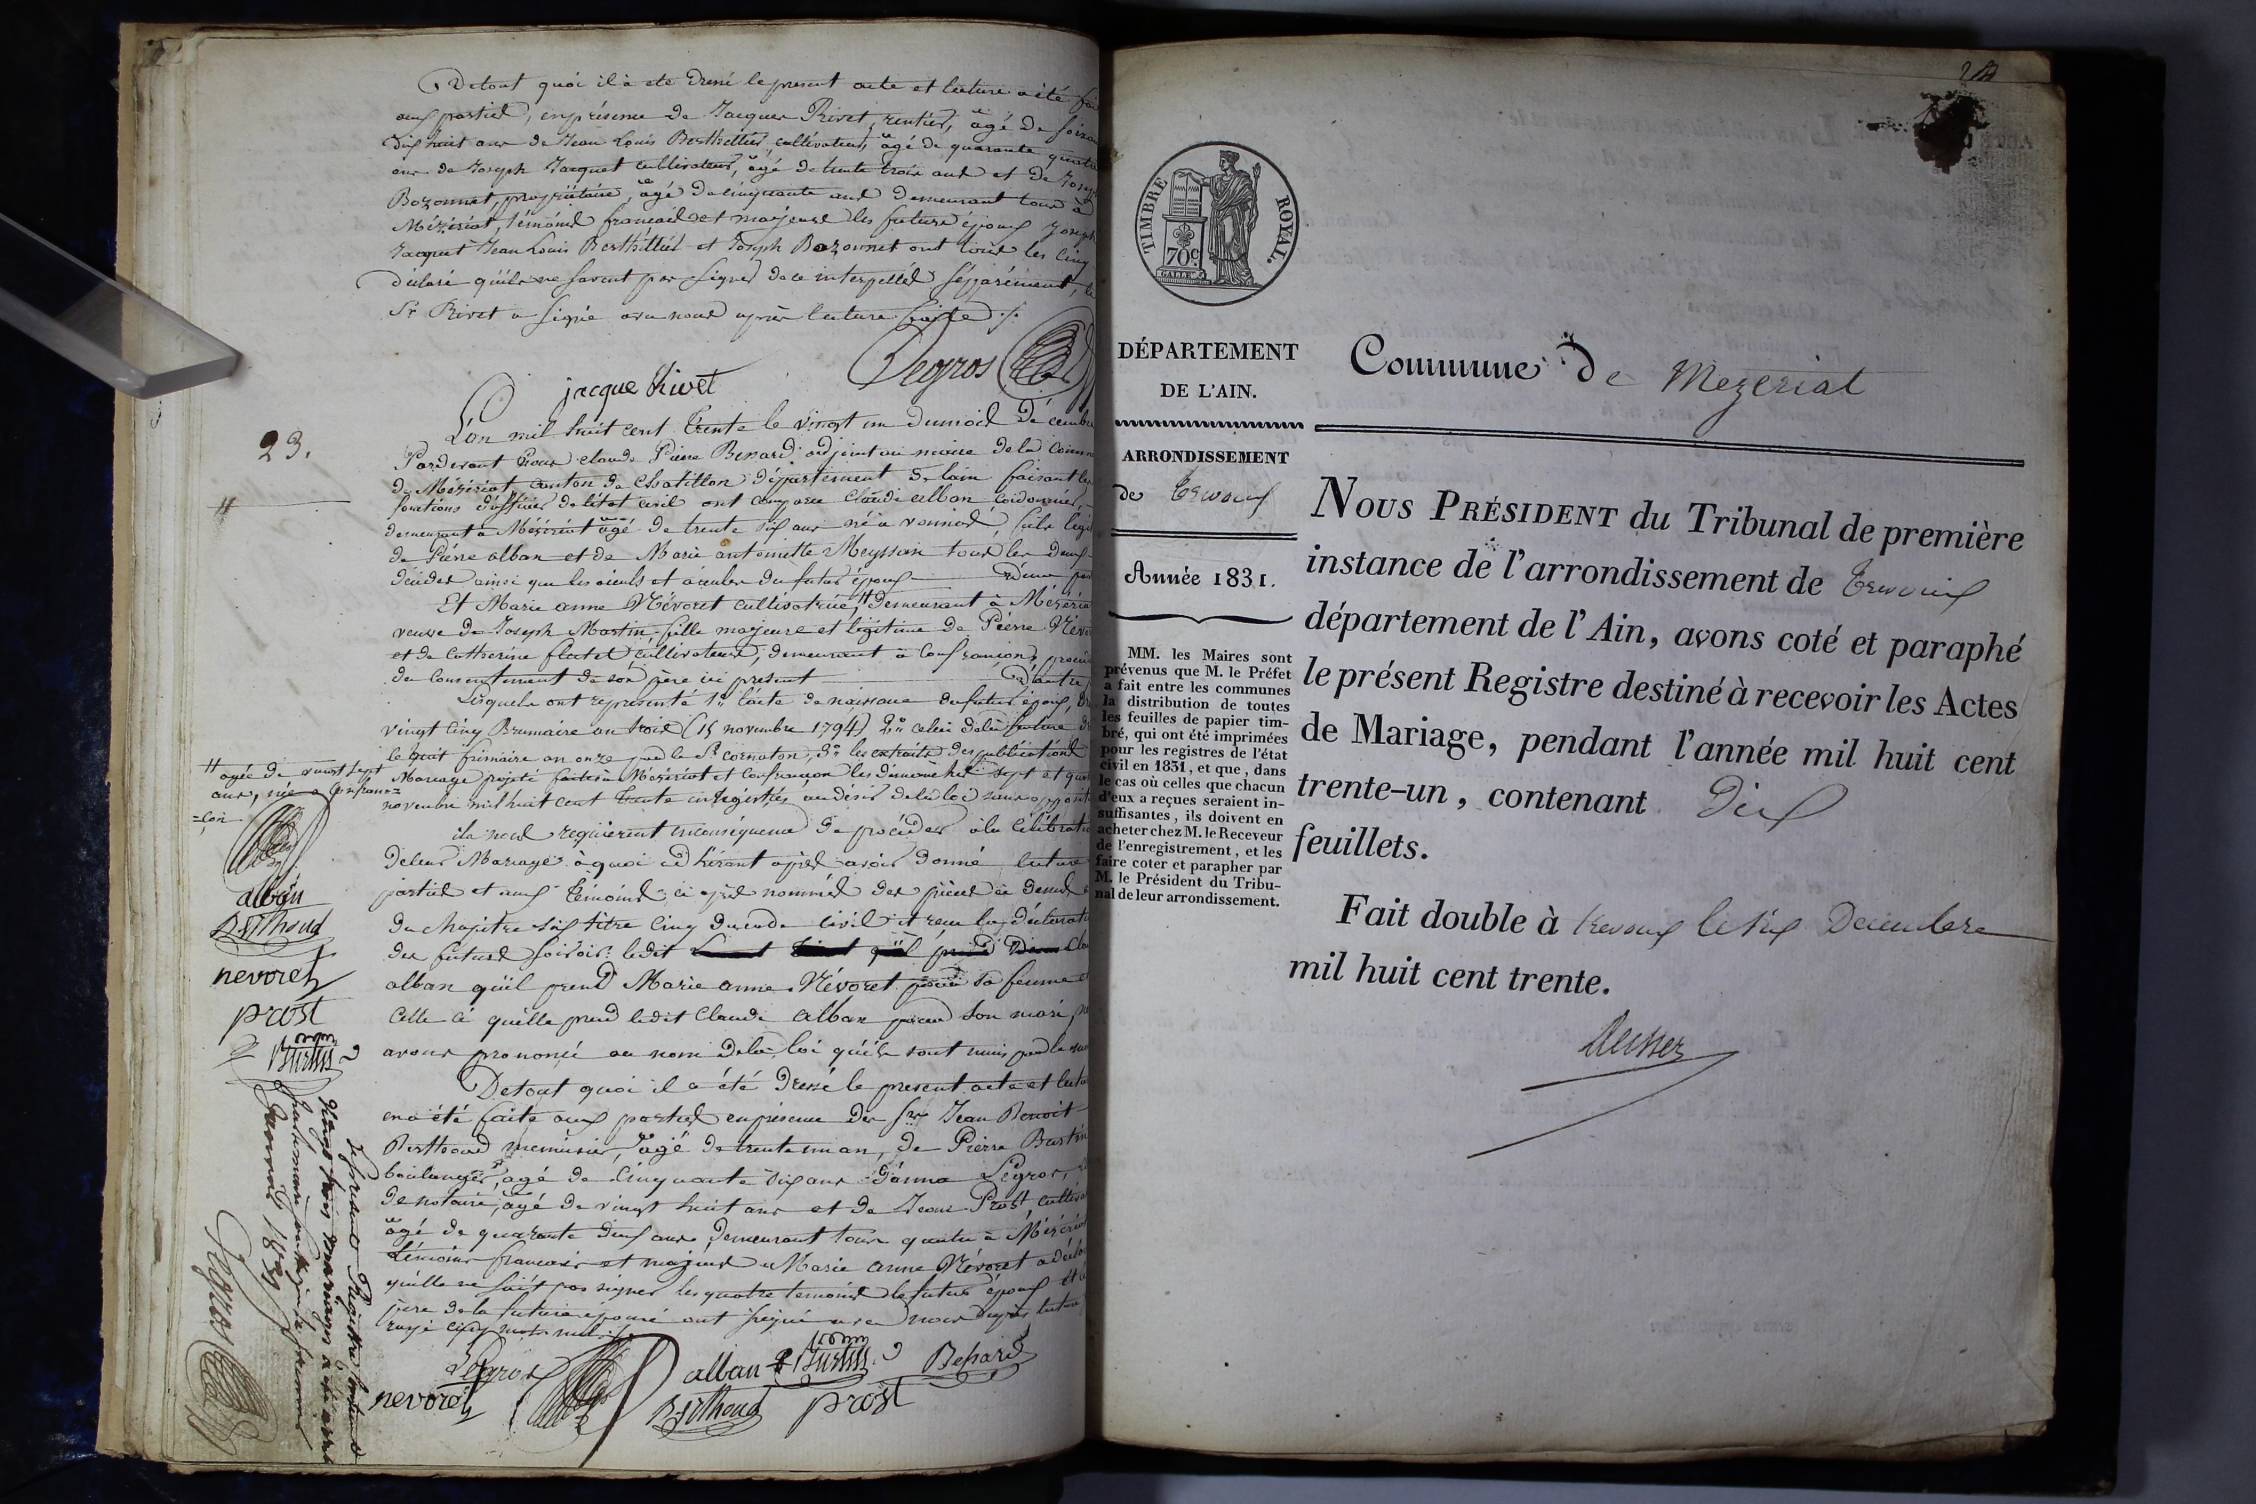 Detout quoi il à eté dressé le present acte et lecture a été
aux parties, en présence de Jacques Rivet, rentier, agé de soixante
dix huit ans de Jean Louis Berthillier, cultivateur, agé de quarante quatre
ans de Joseph Jacquet cultivateur, agé de trente trois ans et de Joseph
Bozonnet, propriétaire, agé de cinquante ans demeurant tous à
Mézériat, témoins français et majeurs les futurs époux Joseph
Jacquet Jean Louis Berthillier et Joseph Bozonnet ont tous les cinq
déclaré qu'ils ne savent pas signer de ce interpellés séparément, le
Sr Rivet a signé avec nous après lecture faite
jacque Rivet Legros
23.
L'an mil huit cent trente le vingt un du mois Décembre
Pardevant Nous claude Pierre Benard adjoint au maire de la Commune
de Mézériat canton de Chatillon département de lain faisant les
fonctions d'officier de létat civil ont comparu Claude alban cordonnier,
demeurant à Mézériat agé de trente six ans né à vonnas, fils légi
de Pierre alban et de Marie antoinette Meyssain tous les deux
décédés ainsi que les aieuls et aieules du futur époux D'une part
Et Marie anne Névoret cultivatrice, demeurant à Mézériat
veuve de Joseph Martin, fille majeure et légitime de Pierre Névoret
et de Catherine flutet cultivateurs, demeurant à Confrançon,
du consentement de son père ici present D'autre
Lesquels ont representé 1° l'acte de naissance du futur époux, du
vingt cinq Brumaire an trois (15 novembre 1794) 2° celui de la future du
le huit frimaire an onze par le Sr cornaton, 3° les extraits des publications
Mariage projeté faites à Mézériat et Confrançon les dimanches sept et quatorze
novembre mil huit cent trente enregistrées au désir de la loi sans opposition
agée de vingt sept
ans, née a Confran=
=çon
ils nous requièrent en conséquence de procéder à la célébration
de leur Mariage à quoi adhérant après avoir donné lecture
parties et aux témoins ci après nommés des pièces ci dessus
du chapitre six titre cinq du code civil et reçu les déclarations
des futurs savoir: ledit
alban qu'il prend Marie anne Névoret pour sa femme et
Celle ci quelle prend ledit Claude alban pour son mari,
avons prononcé au nom de la loi qu'ils sont unis par le
Detout quoi il a été dressé le present acte et lecture
en a été faite aux parties en présence des Srs Jean Benoit
Berthoud menuisier, agé de trente un an, de Pierre Burtin
boulanger, agé de cinquante six ans Legros,
de notaire, agé de vingt huit ans et de Prost cultivateur
agé de quarante deux ans, demeurant tous quatre à Mézériat
témoins français et majeurs Marie anne Névoret a déclaré
qu'elle ne sait pas signer les quatre temoins le futur époux et le
père de la future épouse ont signé avec nous après lecture
rayé cinq mots nuls
Legros alban Burtin Benard
nevoret Berthoud prost
alban
Berthoud
nevoret
prost
Burtin
Le present Registre contenant
vingt trois mariages a été
Janvier 1831
Legros
TIMBRE ROYAL.
70c.
DÉPARTEMENT
DE L'AIN.
ARRONDISSEMENT
de Trevoux
Année 1831.
MM. les Maires sont
prévenus que M. le Préfet
a fait entre les communes
la distribution de toutes
les feuilles de papier tim-
bré, qui ont été imprimées
pour les registres de l'état
civil en 1831, et que, dans
le cas où celles que chacun
d'eux a reçues seraient in-
suffisantes, ils doivent en
acheter chez M. le Receveur
de l'enregistrement, et les
faire coter et parapher par
M. le Président du Tribu-
nal de leur arrondissement.
Commune de Mezeriat
NOUS PRÉSIDENT du Tribunal de première
instance de l'arrondissement de Trevoux
département de l'Ain, avons coté et paraphé
le présent Registre destiné à recevoir les Actes
de Mariage, pendant l'année mil huit cent
trente-un, contenant Dix
feuillets.
Fait double à trevoux le six Decembre
mil huit cent trente.